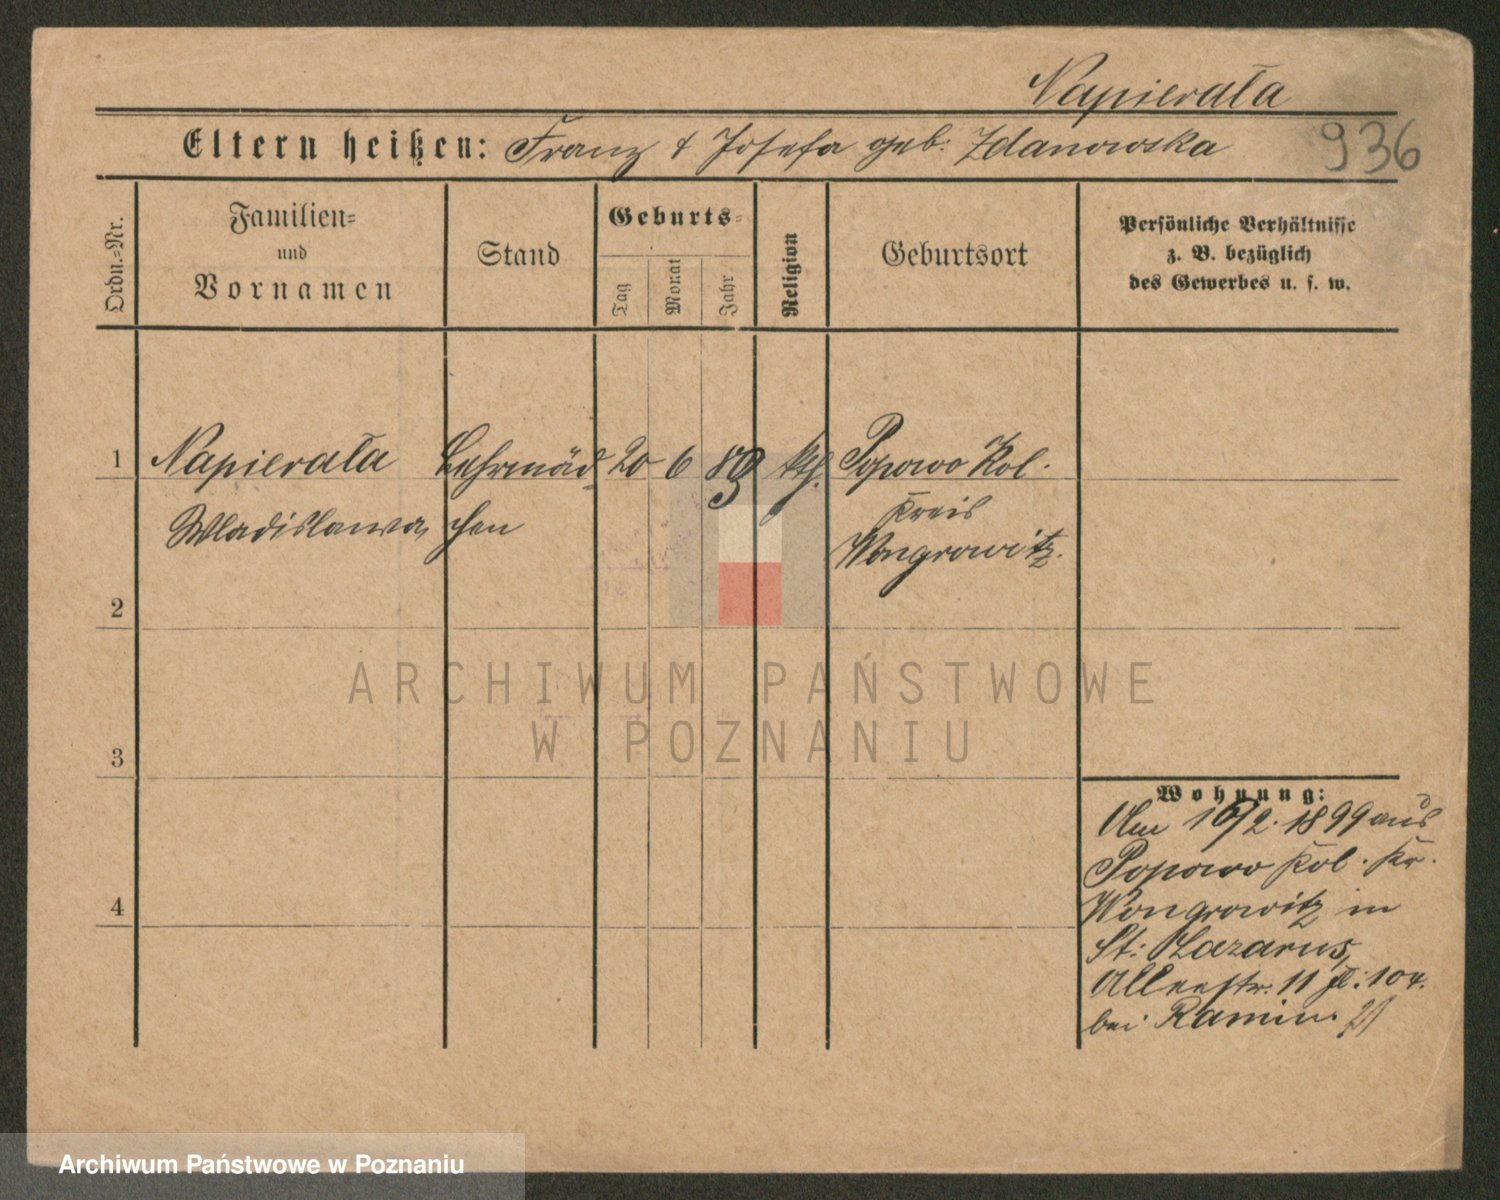 Napierała
Eltern heißen: Franz & Josefa geb: Zdanowska
936
Ordn.=Nr.
Familien=
und
Vornamen
Stand
Geburts=
Tag
Monat
Jahr
Religion
Geburtsort
Persönliche Verhältnisse
z. B. bezüglich
des Gewerbes u. s. w.
1 Napierała Lehrmäd 20 6 83 kth. Popowo Kol.
Wladislawa, chen Kreis
Wongrowitz.
2
ARCHIWUM PAŃSTWOWE
W POZNANIU
3
Wohnung:
Am 16/2. 1899 aus
Popowo Kol. Kr.
4
Wongrowitz in
St: Lazarus,
Alleestr. 11 104.
bei Ramin.
Archiwum Państwowe w Poznaniu